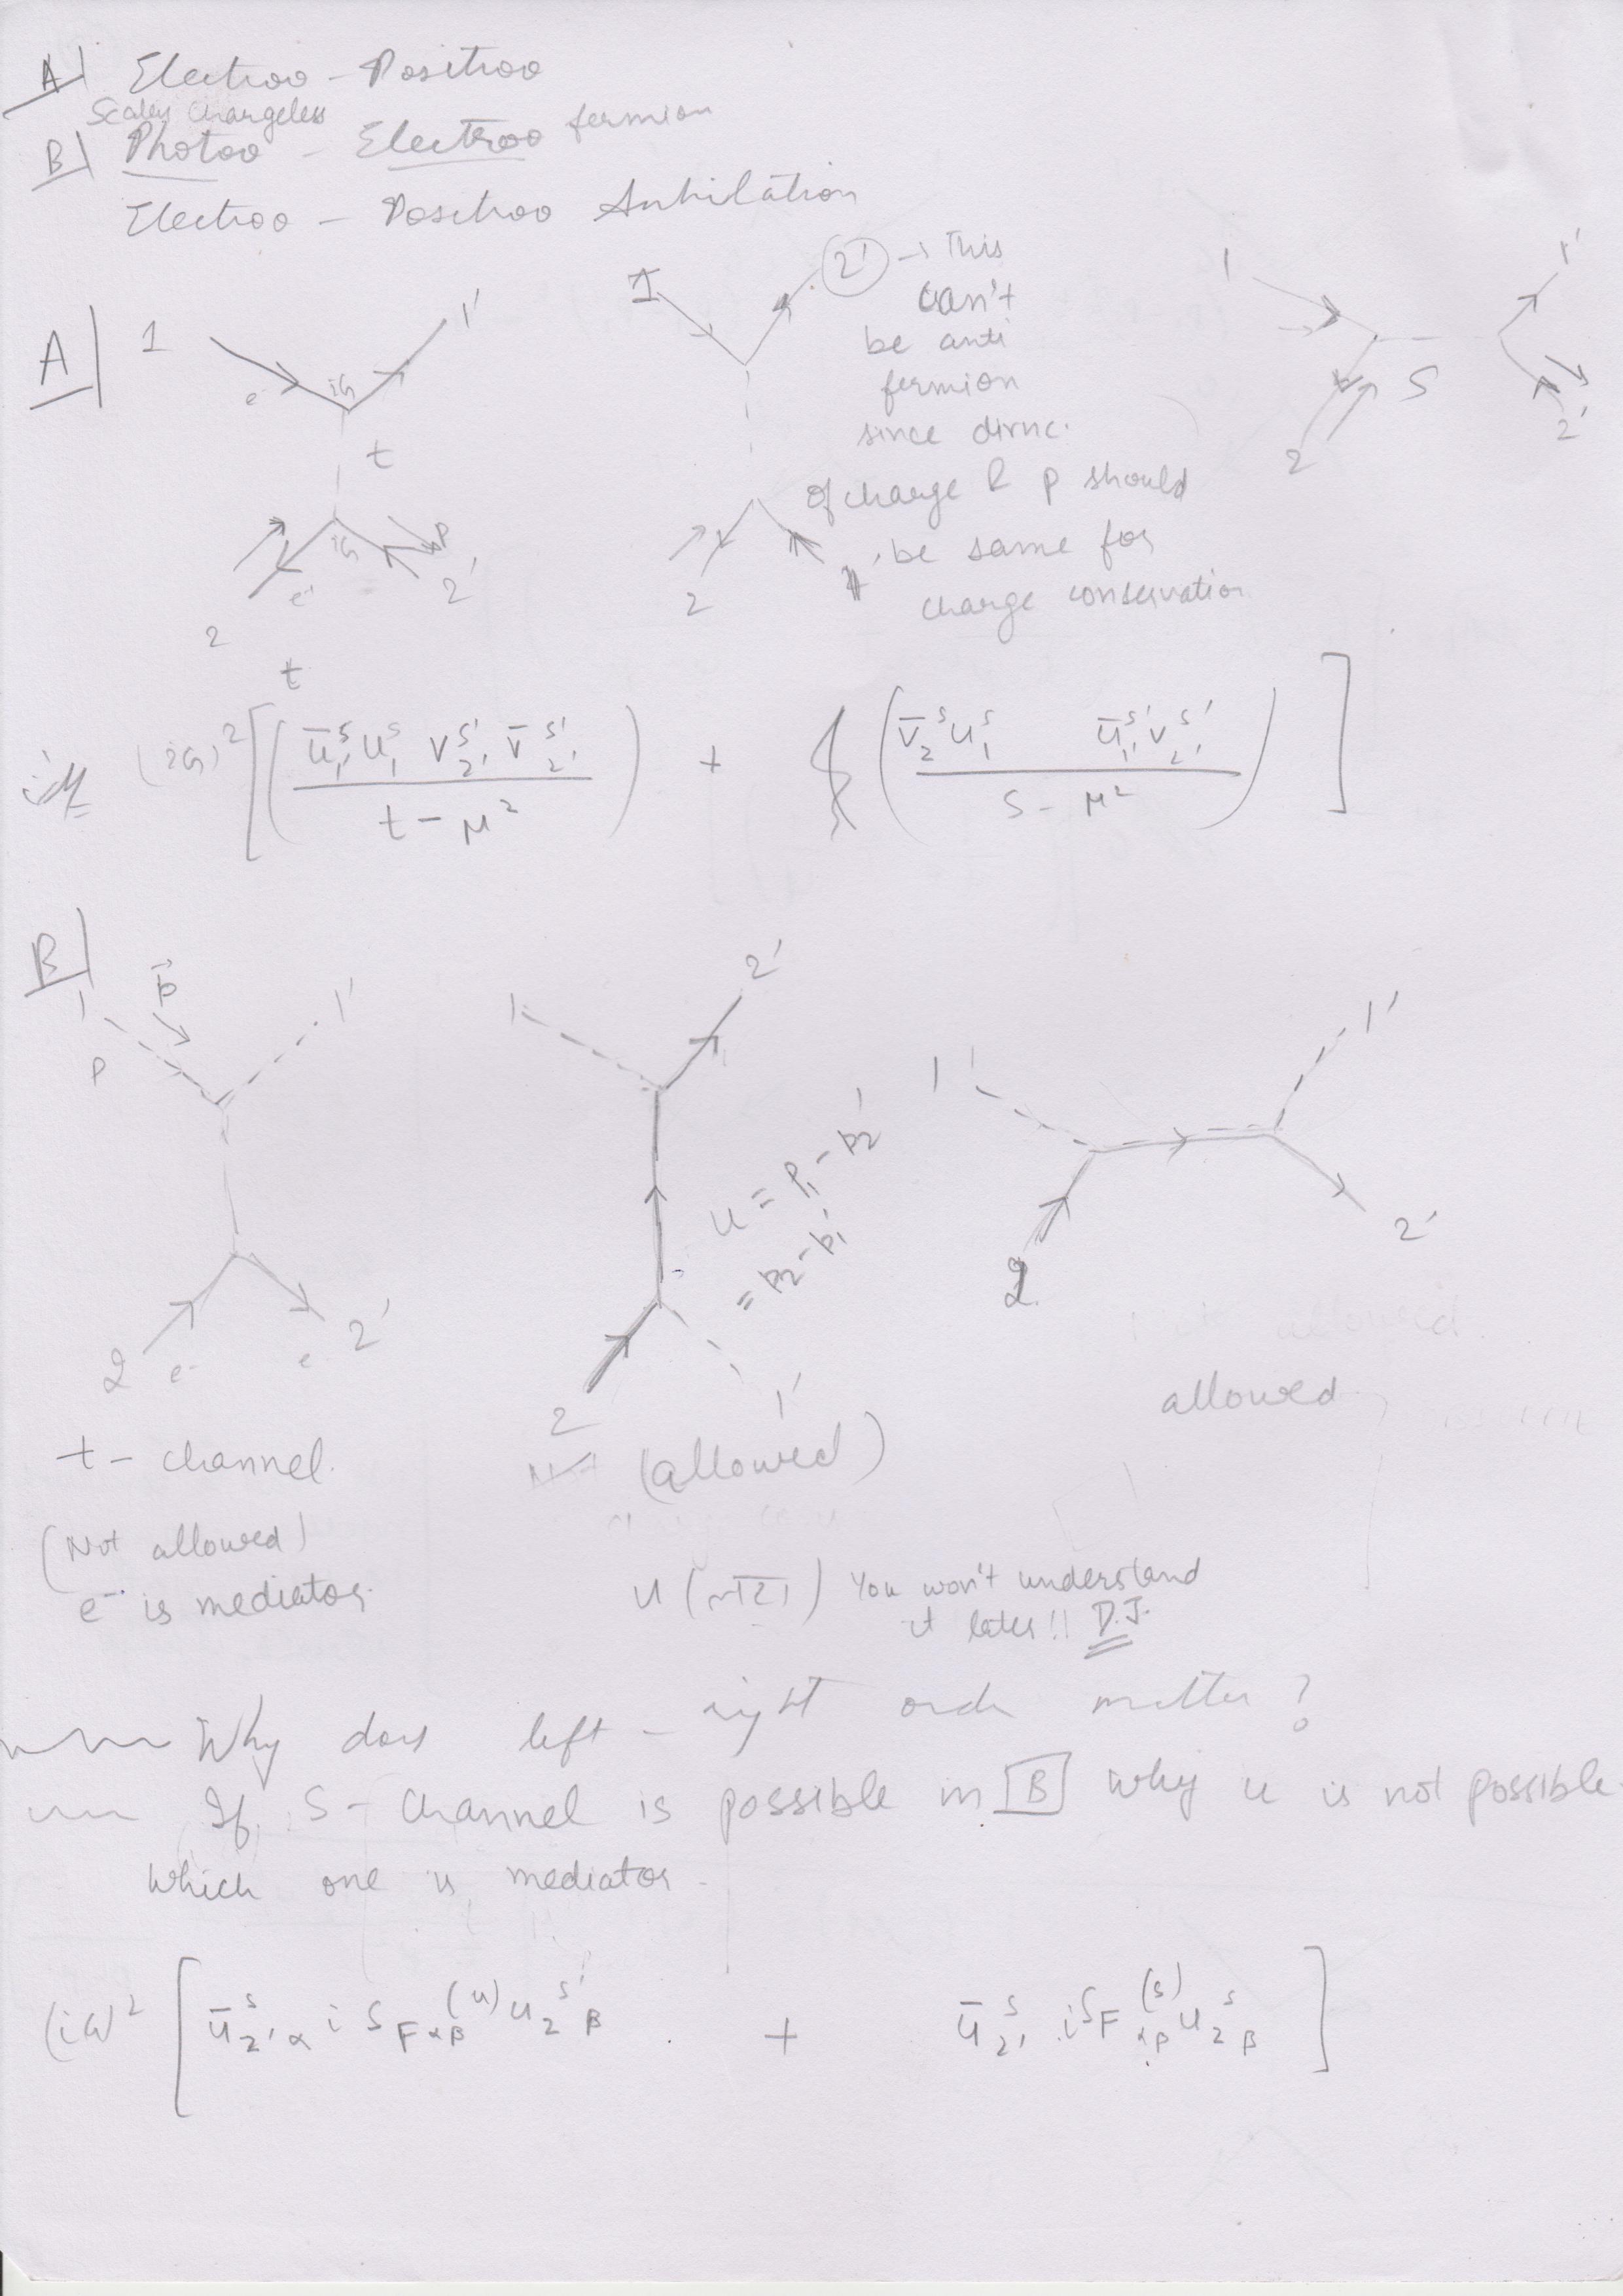 A| Electroo - Positroo
Scaler Chargeless
B| Photoo - Electroo fermion
Electroo - Positroo Anhilation
A|
1 1' e iG t iG e p 2 2'
1 2' → This
can't
be anti
fermion
since dirnc.
of charge & p should
be same for
charge conservation
2 1'
1 1' S 2 2'
t
iM (iG)² [ ( ū₁'ˢ u₁ˢ v₂'ˢ' v̄₂'ˢ' / t - μ² ) + ( v̄₂ˢ u₁ˢ ū₁'ˢ' v₂'ˢ' / s - μ² ) ]
B|
1 p⃗ 1' p
2 e⁻ e⁻ 2'
t - channel.
(Not allowed)
e⁻ is mediator.
1 2'
u = p₁ - p₂'
= p₂ - p₁'
2 1'
(allowed)
1' 1' 2 2'
allowed
u You won't understand
it later!! D.J.
Why does left - right order matter?
If S - channel is possible in B why u is not possible
which one is mediator.
(iG)² [ ū₂'αˢ i S_Fαβ(u) u₂ˢ'β + ū₂'ˢ iS_Fαβ(s) u₂ˢβ ]